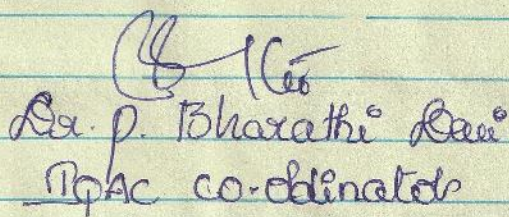 Dr. P. Bharathi Devi
IQAC co-ordinator